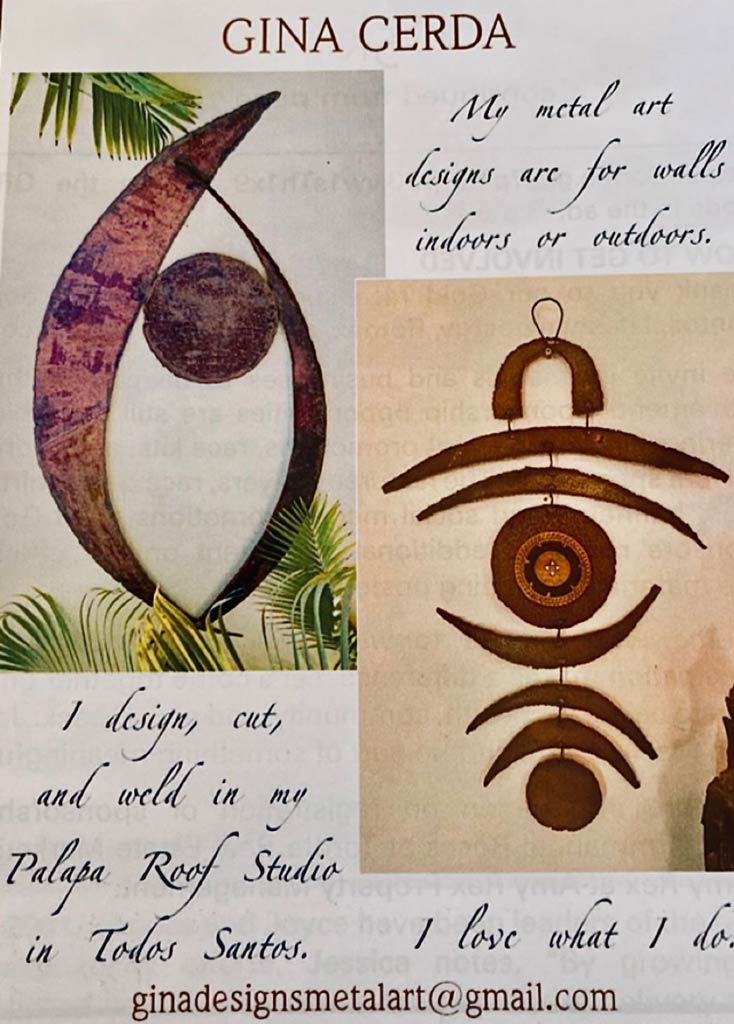 GINA CERDA
My metal art
designs are for walls
indoors or outdoors.
I design, cut,
and weld in my
Palapa Roof Studio
in Todos Santos.
I love what I do.
ginadesignsmetalart@gmail.com